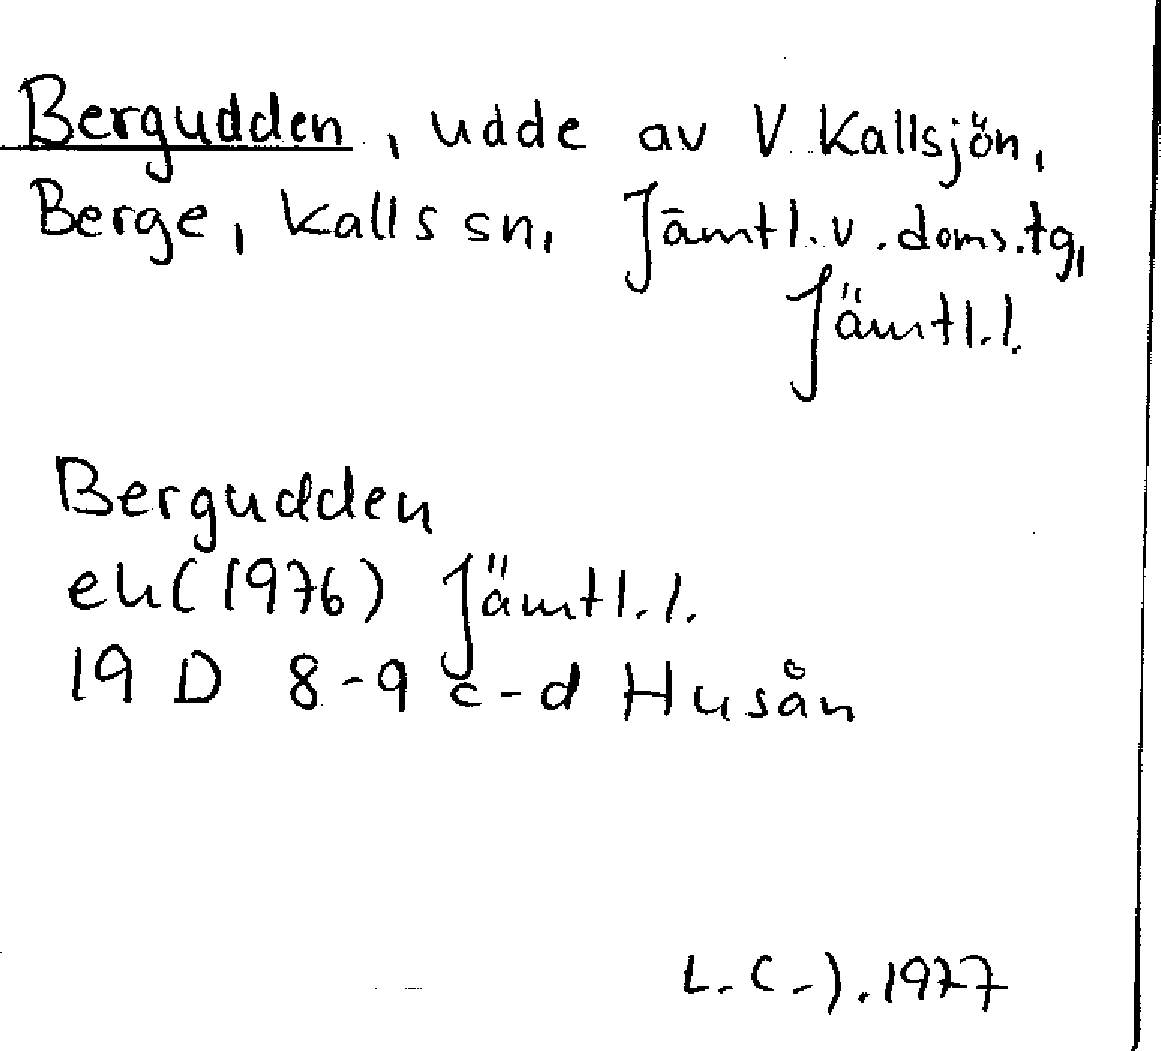 Bergudden, udde av V Kallsjön,
Berge, Kalls sn, Jämtl. v. doms.tg,
Jämtl.l.
Bergudden
ek(1976) Jämtl.l.
19 D 8-9 c-d Husån
L. C-). 1977